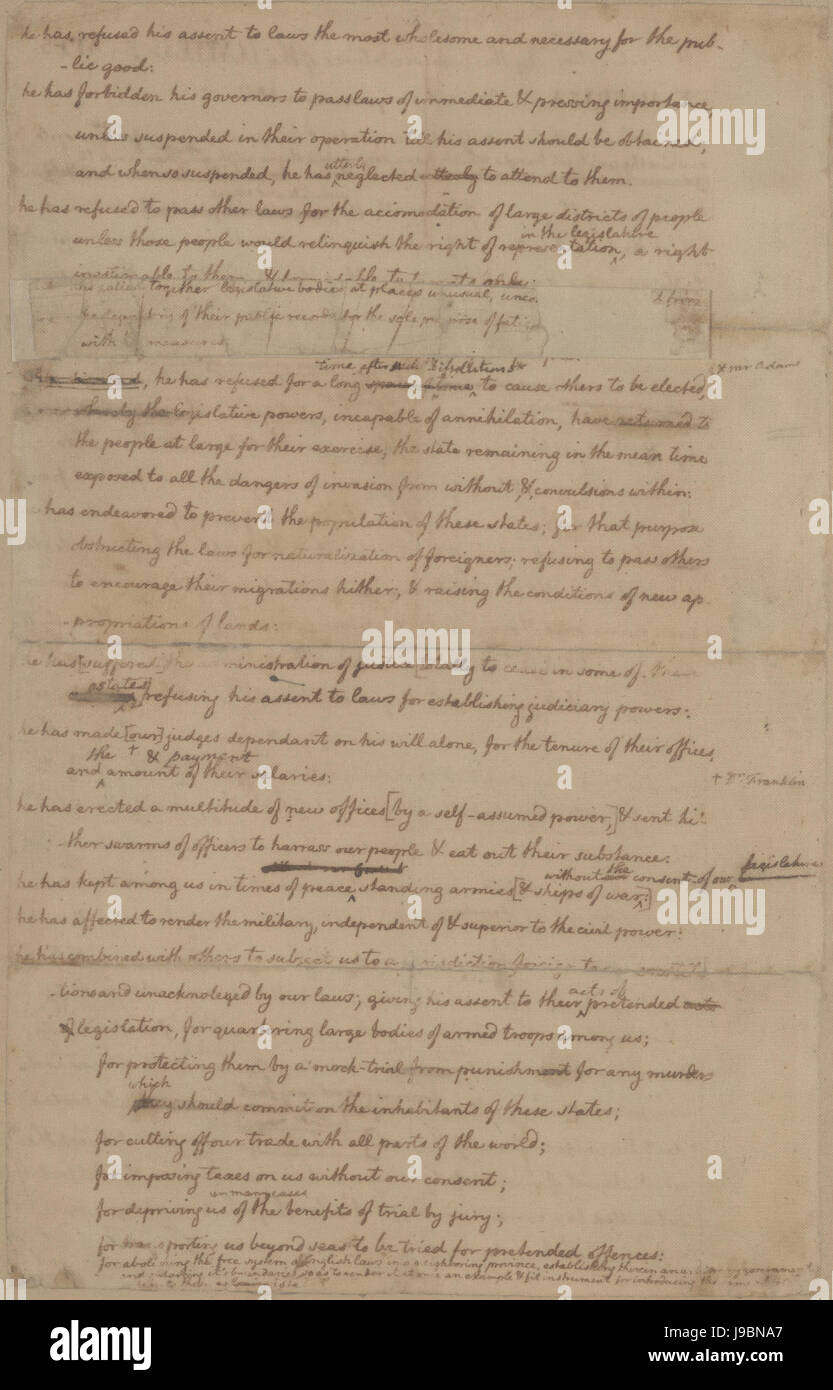 he has refused his assent to laws the most wholesome and necessary for the pub-
-lic good:
he has forbidden his governors to pass laws of immediate & pressing importance,
unless suspended in their operation till his assent should be obtained;
utterly
and when so suspended, he has neglected utterly to attend to them.
he has refused to pass other laws for the accomodation of large districts of people
in the legislature
unless those people would relinquish the right of representation, a right
inestimable to them, &
he called together legislative bodies at places unusual, unco
& from
of their public records for the sole purpose of fati
with his measures
time after such dissolutions
& mr Adams
he has refused for a long space of time to cause others to be elected,
whereby the legislative powers, incapable of annihilation, have returned to
the people at large for their exercise, the state remaining in the mean time
exposed to all the dangers of invasion from without, & convulsions within:
has endeavored to prevent the population of these states; for that purpose
obstructing the laws for naturalization of foreigners; refusing to pass others
to encourage their migrations hither; & raising the conditions of new ap-
-propriations of lands:
he has [suffered] the administration of justice [totally to cease in some of these
states
refusing his assent to laws for establishing judiciary powers:
he has made [our] judges dependant on his will alone, for the tenure of their offices,
the + & payment
and amount of their salaries:
+ Dr. Franklin
he has erected a multitude of new offices [by a self-assumed power,] & sent hi-
-ther swarms of officers to harrass our people & eat out their substance:
without the consent of our legislature
he has kept among us in times of peace standing armies [& ships of war:]
he has affected to render the military, independent of & superior to the civil power:
he has combined with others to subject us to a jurisdiction foreign to
-tions and unacknoleged by our laws; giving his assent to their pretended acts
acts of
of legislation, for quartering large bodies of armed troops among us;
for protecting them by a mock-trial from punishment for any murders
which
they should commit on the inhabitants of these states;
for cutting off our trade with all parts of the world;
for imposing taxes on us without our consent;
in many cases
for depriving us of the benefits of trial by jury;
for transporting us beyond seas to be tried for pretended offences:
for abolishing the free system of English laws in a neighboring province, establishing therein an arbitrary government
and enlarging it's boundaries so as to render it at once an example & fit instrument for introducing the same
alamy
J9BNA7
www.alamy.com